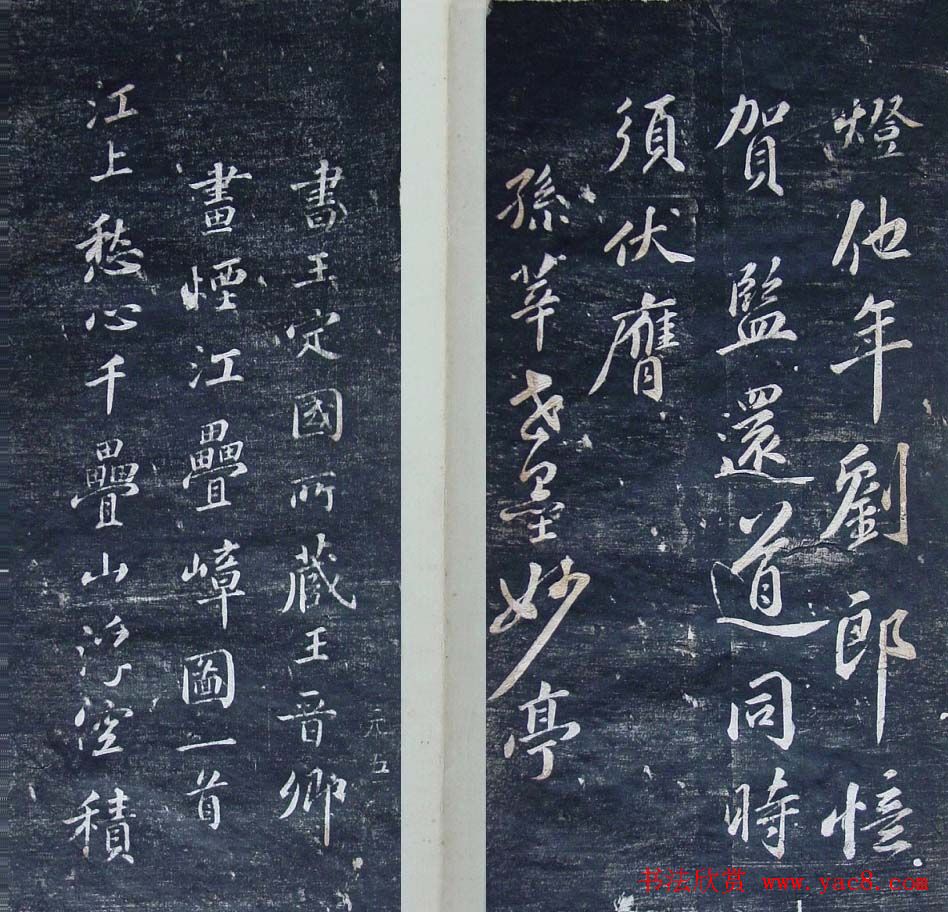 燈他年劉郎憶
賀監還道同時
須伏膺
孫莘老墨妙亭
元五
書王定國所藏王晉卿
畫煙江疊嶂圖一首
江上愁心千疊山浮空積
书法欣赏 www.yac8.com